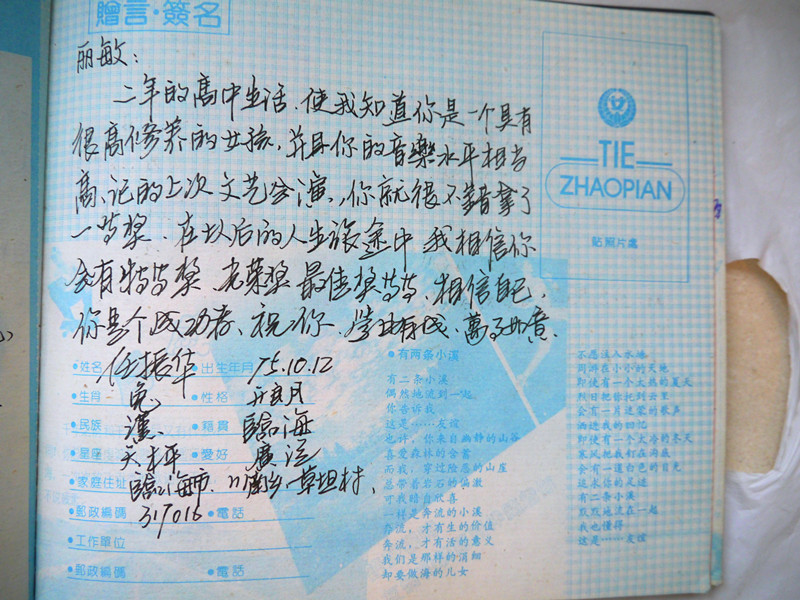 贈言·簽名
丽敏：
二年的高中生活，使我知道你是一个具有
很高修养的女孩，并且你的音樂水平相当
高，记的上次文艺会演，你就很不錯拿了
一等奖．在以后的人生旅途中 我相信你
会有特等奖 光荣奖 最佳奖等等，相信自己，
你是个成功者、祝你 学业有成、萬了
TIE
ZHAOPIAN
貼照片處
●姓名 任振华 ●出生年月 75.10.12
●生肖 兔 ●性格 开
●民族 漢 ●籍貫 臨海
●星座 天秤 ●愛好 廣泛
●家庭住址 臨海市 草坦村
●郵政編碼 317016 ●電話
●工作單位
●郵政編碼 ●電話
●有两条小溪
有二条小溪
偶然地流到一起
你告诉我
这是……友谊
也许，你来自幽静的山谷
喜爱森林的含蓄
而我，穿过险恶的山崖
总带着岩石的偏激
可我暗自欣喜
一样是奔流的小溪
奔流，才有生的价值
奔流，才有活的意义
我们是那样的涓细
却要做海的儿女
不愿汇入水池
即使有一个太热的夏天
烈日把你托到云里
会有一月迷蒙的歌声
洒进我的回忆
即使有一个太冷的冬天
寒风把我钉在沟底
会有一道白色的目光
有二条小溪
默默地流在一起
我也懂得
这是……友谊